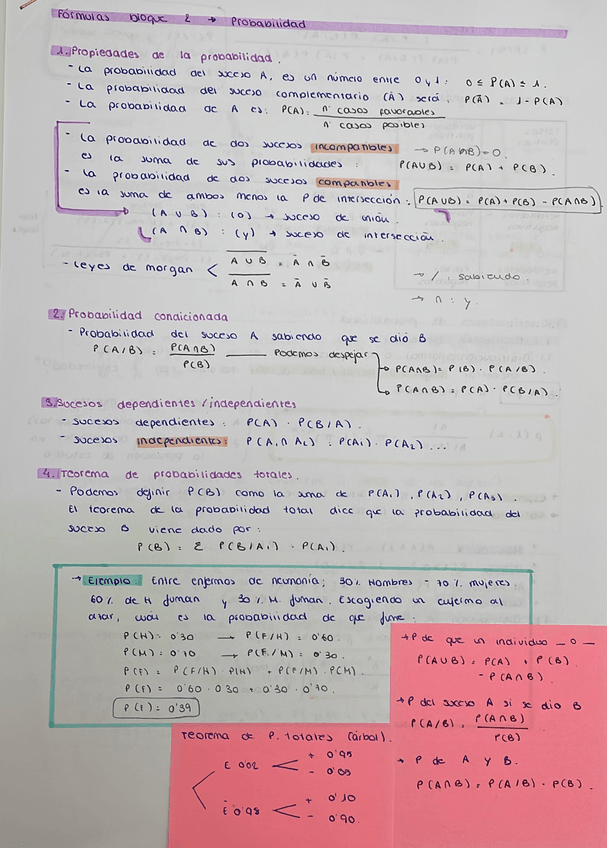 Fórmulas bloque 2 → Probabilidad
1. Propiedades de la probabilidad.
- La probabilidad del suceso A, es un número entre 0 y 1: 0 ≤ P(A) ≤ 1.
- La probabilidad del suceso complementario (Ā) será: P(Ā) = 1 - P(A)
- La probabilidad de A es: P(A) = nº casos favorables
nº casos posibles
- La probabilidad de dos sucesos incompatibles → P(A∩B)=0.
es la suma de sus probabilidades: P(A∪B) = P(A) + P(B).
- La probabilidad de dos sucesos compatibles
es la suma de ambos menos la P de intersección: P(A∪B) = P(A)+P(B) - P(A∩B)
(A ∪ B) : (o) → suceso de unión.
(A ∩ B) : (y) → suceso de intersección.
- Leyes de morgan < A̅ ̅∪̅ ̅B̅ = Ā ∩ B̄
A̅ ̅∩̅ ̅B̅ = Ā ∪ B̄
→ / : sabiendo.
→ ∩ : y.
2. Probabilidad condicionada
- Probabilidad del suceso A sabiendo que se dio B
P(A/B) = P(A∩B) Podemos despejar
P(B)
→ P(A∩B) = P(B) · P(A/B).
→ P(A∩B) = P(A) · P(B/A).
3. Sucesos dependientes / independientes
- Sucesos dependientes : P(A) · P(B/A).
- Sucesos independientes: P(A₁ ∩ A₂) = P(A₁) · P(A₂) ...
4. Teorema de probabilidades totales.
- Podemos definir P(B) como la suma de P(A₁), P(A₂), P(A₃).
El teorema de la probabilidad total dice que la probabilidad del
suceso B viene dado por:
P(B) = Σ P(B/Aᵢ) · P(Aᵢ).
→ Ejemplo: Entre enfermos de neumonía; 30% Hombres - 70% mujeres.
60% de H fuman y 30% M. fuman. Escogiendo un enfermo al
azar, cuál es la probabilidad de que fume:
P(H) = 0'30 → P(F/H) = 0'60.
P(M) = 0'70 → P(F/M) = 0'30.
P(F) = P(F/H) · P(H) + P(F/M) · P(M).
P(F) = 0'60 · 0'30 + 0'30 · 0'70.
P(F) = 0'39
→ P de que un individuo _ o _
P(A∪B) = P(A) + P(B)
- P(A∩B)
→ P del suceso A si se dio B
P(A/B) = P(A∩B)
P(B)
→ P de A y B.
P(A∩B) = P(A/B) · P(B).
Teorema de P. totales (árbol).
+ 0'95
E 0'02 <
- 0'05
+ 0'10
Ē 0'98 <
- 0'90.